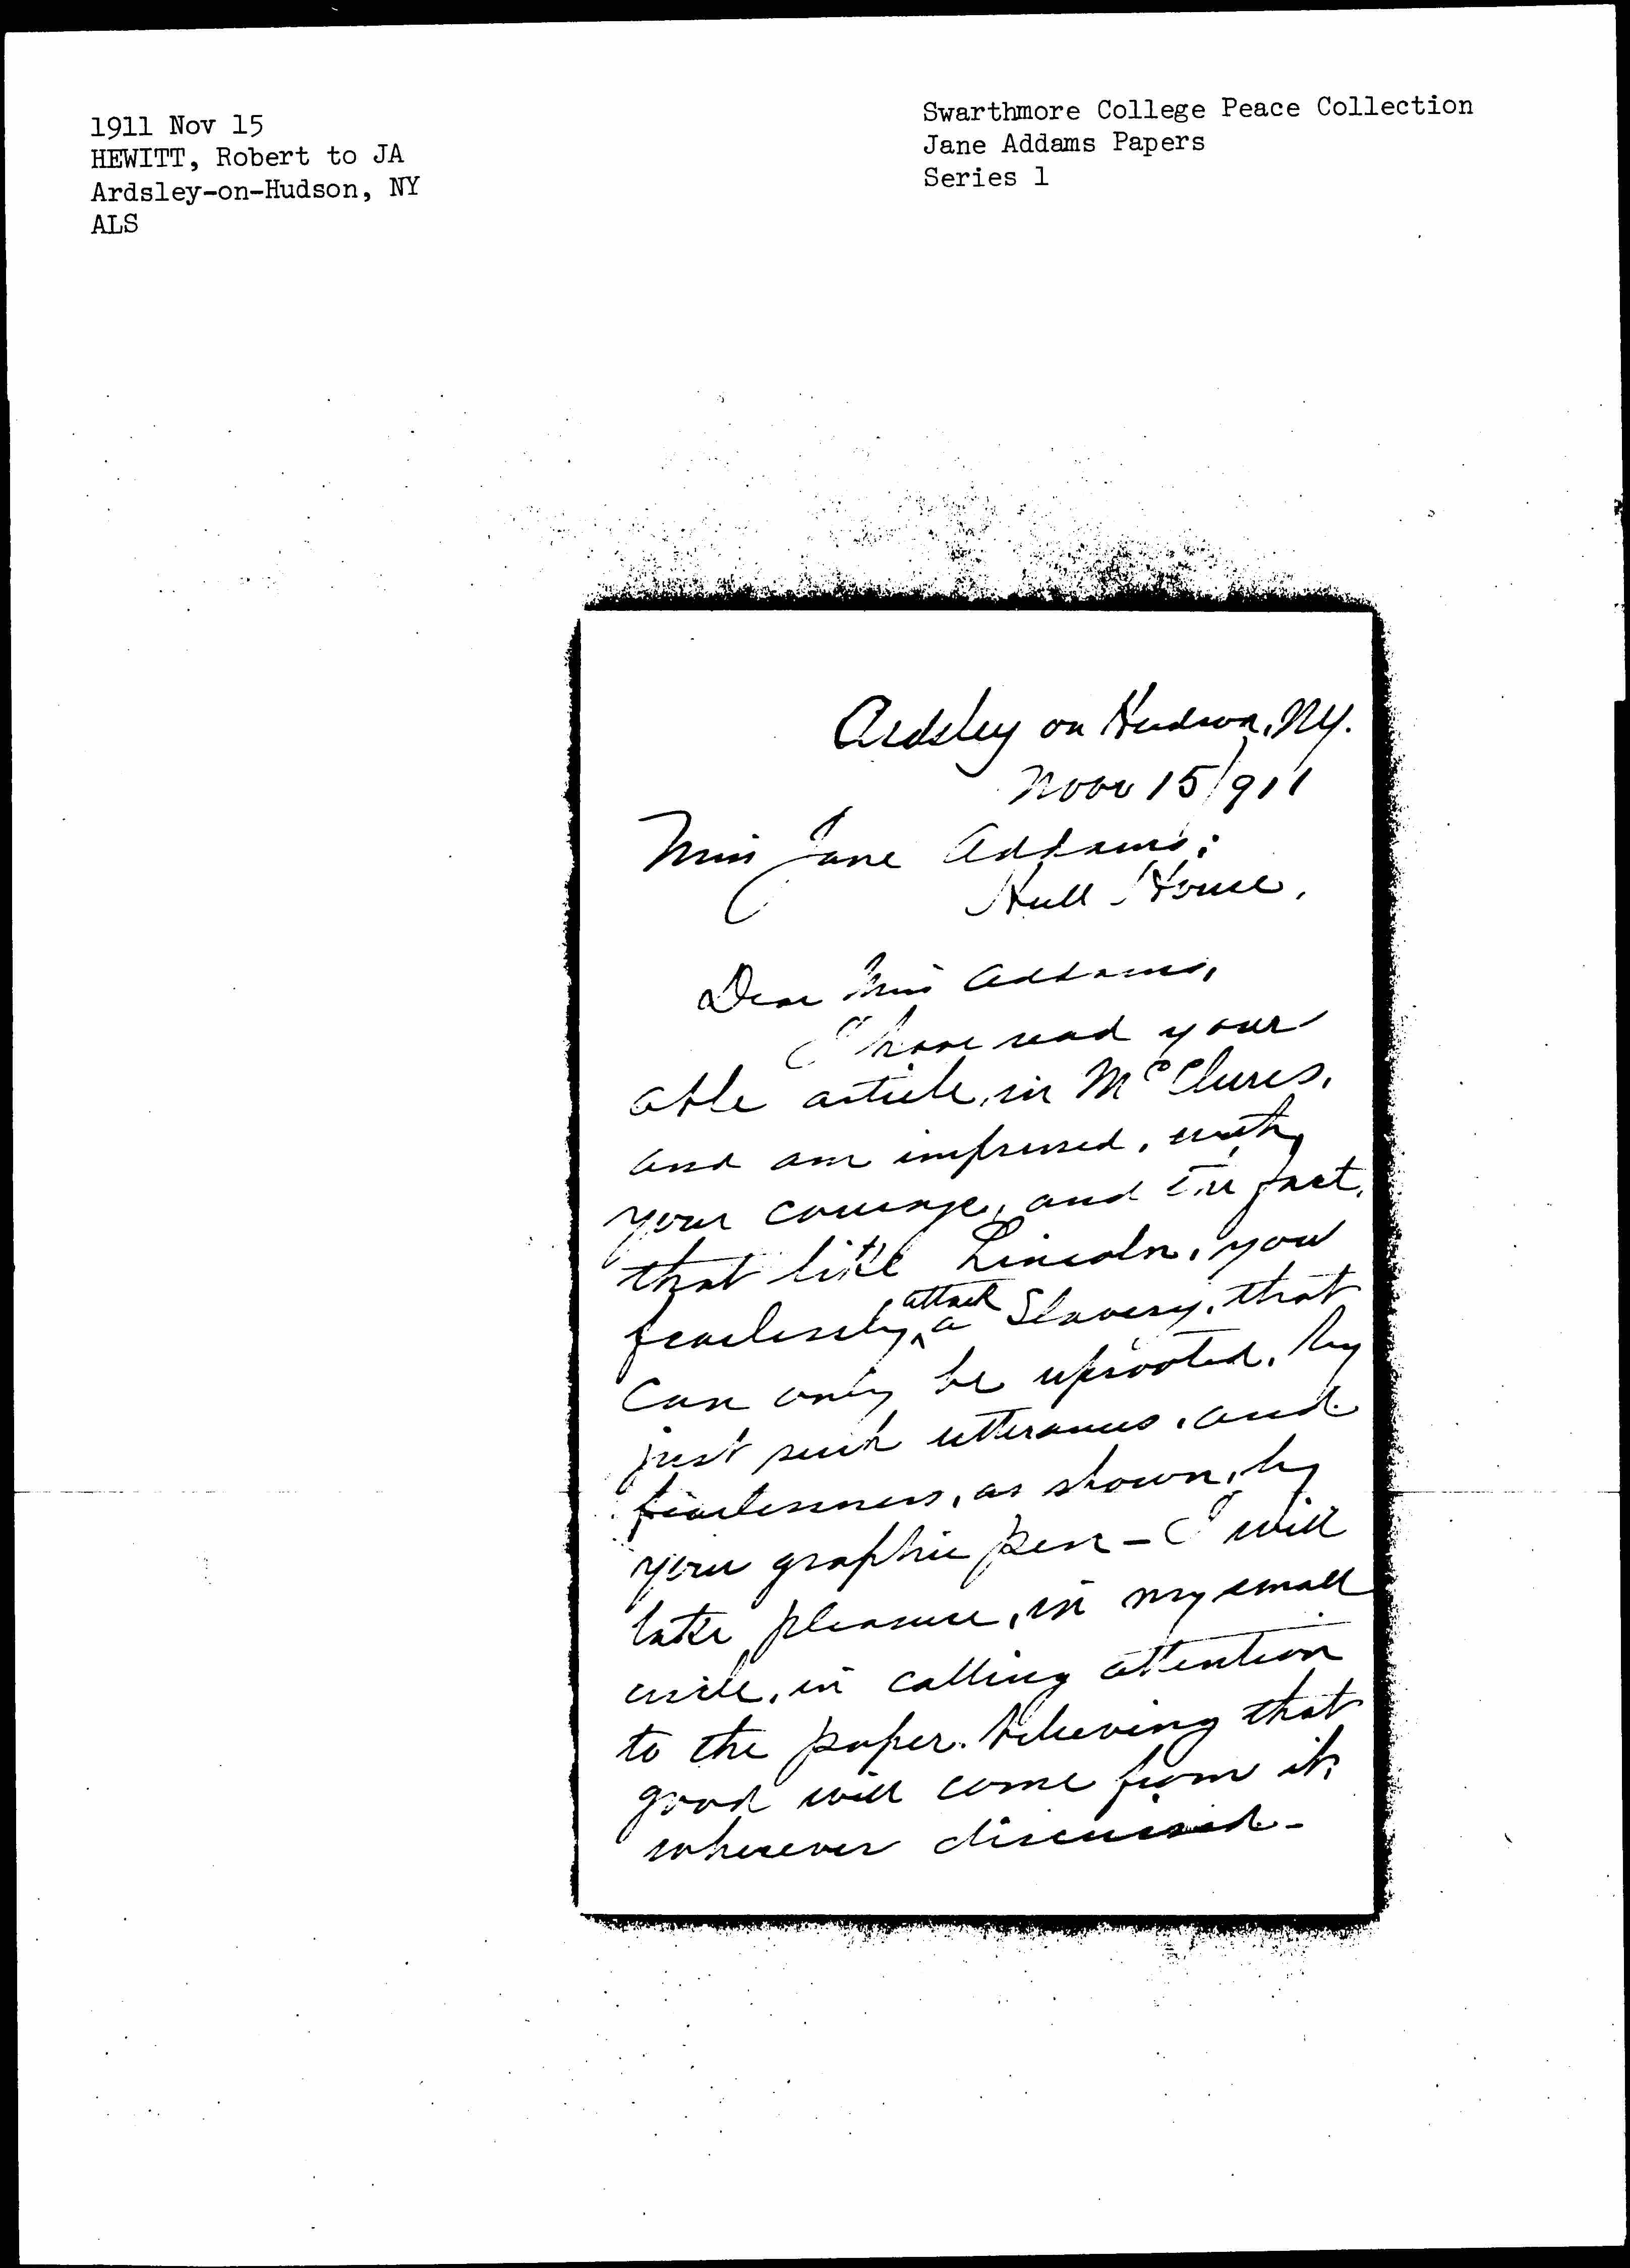 1911 Nov 15
HEWITT, Robert to JA
Ardsley-on-Hudson, NY
ALS
Swarthmore College Peace Collection
Jane Addams Papers
Series 1
Ardsley on Hudson, NY.
Nov 15/911
Miss Jane Addams;
Hull House,
Dear Miss Addams,
I have read your
able article, in McClures,
and am impressed, with
your courage, and the fact,
that like Lincoln, you
fearlessly attack a Slavery, that
can only be uprooted, by
just such utterances, and
fearlessness, as shown, by
your graphic pen - I will
take pleasure, in my small
circle, in calling attention
to the paper. believing that
good will come from it,
wherever discussed -